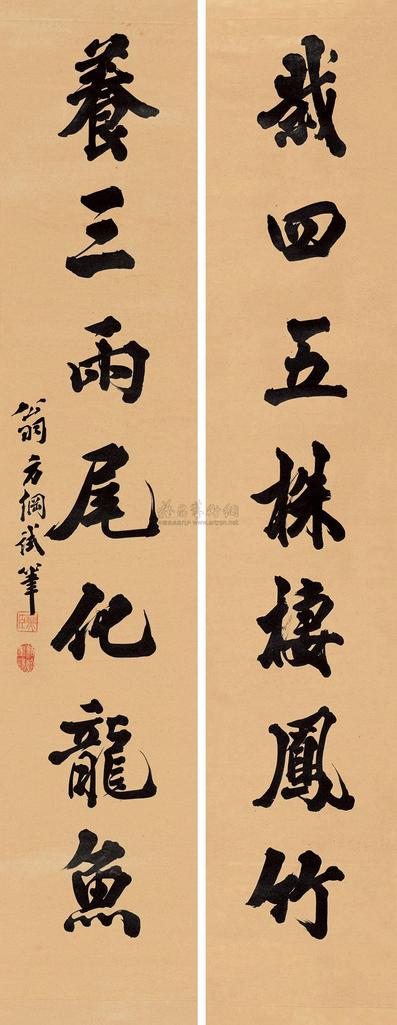 栽四五株棲鳳竹
養三兩尾化龍魚
翁方綱試筆
雅昌藝術網
www.artron.net